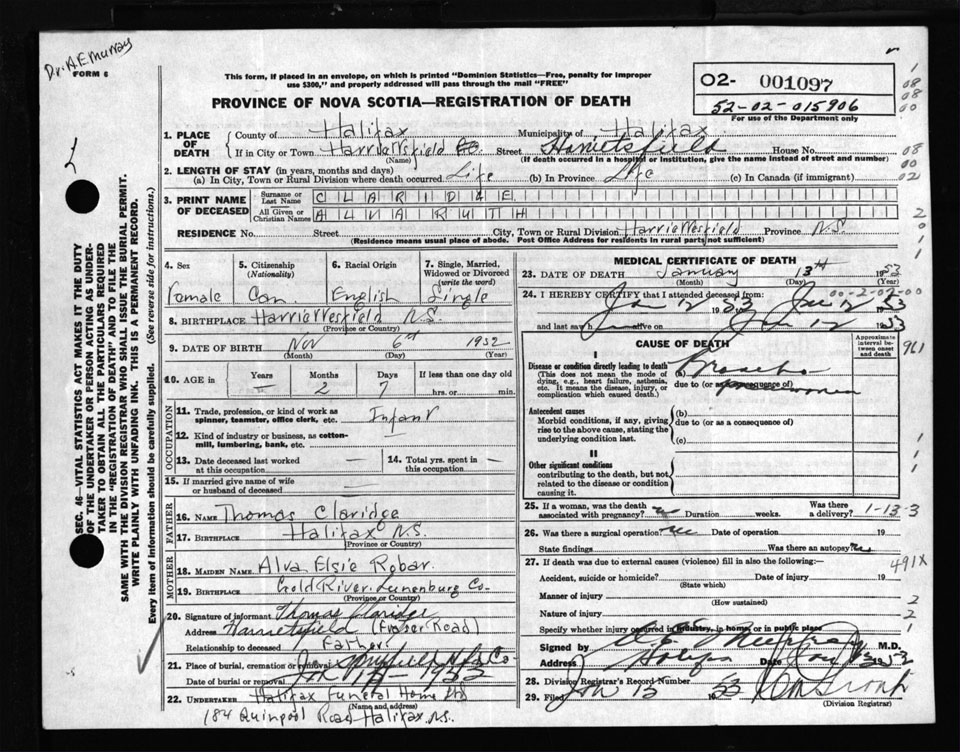 Dr. A E Murray
FORM 6
This form, if placed in an envelope, on which is printed "Dominion Statistics—Free, penalty for improper
use $300," and properly addressed will pass through the mail "FREE"
PROVINCE OF NOVA SCOTIA—REGISTRATION OF DEATH
O2- 001097
52-02-015906
For use of the Department only
SEC. 46—VITAL STATISTICS ACT MAKES IT THE DUTY
OF THE UNDERTAKER OR PERSON ACTING AS UNDER-
TAKER TO OBTAIN ALL THE PARTICULARS REQUIRED
IN THE "REGISTRATION OF DEATH" AND TO FILE THE
SAME WITH THE DIVISION REGISTRAR WHO SHALL ISSUE THE BURIAL PERMIT.
WRITE PLAINLY WITH UNFADING INK. THIS IS A PERMANENT RECORD.
Every item of Information should be carefully supplied. (See reverse side for instructions.)
1. PLACE OF DEATH
County of Halifax Municipality of Halifax
If in City or Town Harrietsfield Street Harrietsfield House No.
(Name) (If death occurred in a hospital or institution, give the name instead of street and number)
2. LENGTH OF STAY (in years, months and days)
(a) In City, Town or Rural Division where death occurred Life (b) In Province Life (c) In Canada (if immigrant)
3. PRINT NAME OF DECEASED
Surname or Last Name CLARIDGE
All Given or Christian Names ALVA RUTH
RESIDENCE No. Street City, Town or Rural Division Harrietsfield Province N.S.
(Residence means usual place of abode. Post Office Address for residents in rural parts not sufficient)
4. Sex Female
5. Citizenship (Nationality) Can.
6. Racial Origin English
7. Single, Married, Widowed or Divorced (write the word) Single
8. BIRTHPLACE Harrietsfield N.S.
(Province or Country)
9. DATE OF BIRTH Nov 6th 1952
(Month) (Day) (Year)
10. AGE in Years — Months 2 Days 7 If less than one day old hrs. or min.
OCCUPATION
11. Trade, profession, or kind of work as spinner, teamster, office clerk, etc. Infant
12. Kind of industry or business, as cotton-mill, lumbering, bank, etc. —
13. Date deceased last worked at this occupation —
14. Total yrs. spent in this occupation —
15. If married give name of wife or husband of deceased —
FATHER
16. NAME Thomas Claridge
17. BIRTHPLACE Halifax N.S.
(Province or Country)
MOTHER
18. MAIDEN NAME Alva Elsie Robar
19. BIRTHPLACE Gold River Lunenburg Co.
(Province or Country)
20. Signature of informant Thomas Claridge
Address Harrietsfield (Fraser Road)
Relationship to deceased Father
21. Place of burial, cremation or removal
Date of burial or removal
22. UNDERTAKER Halifax Funeral Home Ltd
(Name and address)
184 Quinpool Road Halifax N.S.
MEDICAL CERTIFICATE OF DEATH
23. DATE OF DEATH January 13th 1953
(Month) (Day)
24. I HEREBY CERTIFY that I attended deceased from:
Jan 12 1953 Jan 12 1953
and last saw h alive on Jan 12 1953
CAUSE OF DEATH
Approximate interval between onset and death
I
Disease or condition directly leading to death
(This does not mean the mode of dying, e.g., heart failure, asthenia, etc. It means the disease, injury, or complication which caused death.)
(a) Broncho
due to (or as a consequence of)
Antecedent causes
Morbid conditions, if any, giving rise to the above cause, stating the underlying condition last.
(b)
due to (or as a consequence of)
(c)
II
Other significant conditions
contributing to the death, but not related to the disease or condition causing it.
25. If a woman, was the death associated with pregnancy? Duration weeks. Was there a delivery? 1-13-3
26. Was there a surgical operation? Date of operation 19
State findings Was there an autopsy?
27. If death was due to external causes (violence) fill in also the following:—
Accident, suicide or homicide? Date of injury 19 491X
(State which)
Manner of injury
(How sustained)
Nature of injury
Specify whether injury occurred in industry, in home or in public place
Signed M.D.
Address Date
28. Division Registrar's Record Number
29. Filed Jan 13 1953
(Division Registrar)